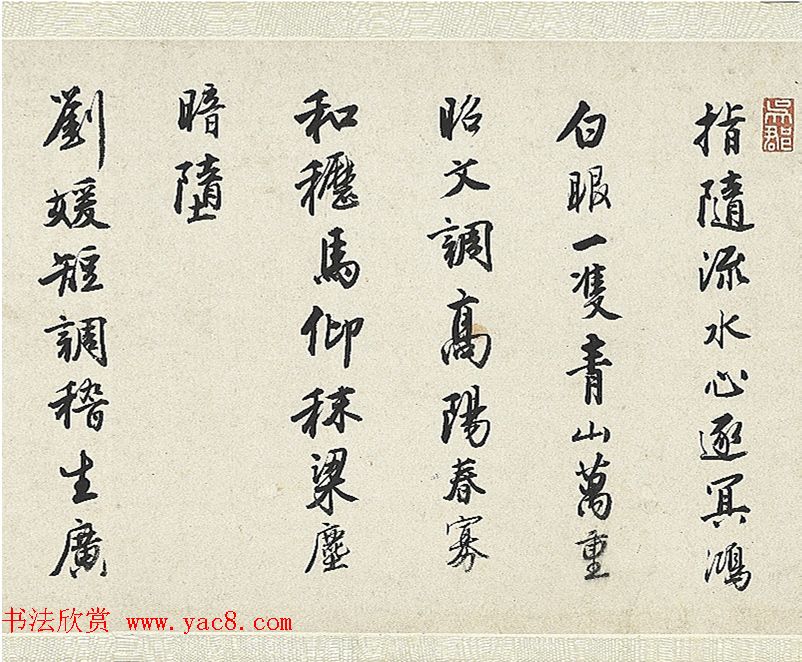 指隨流水心逐冥鴻
白眼一隻青山萬重
昭文調高陽春寡
和櫪馬仰秣梁塵
暗墮
劉媛短調嵇生廣
吳郡
书法欣赏 www.yac8.com